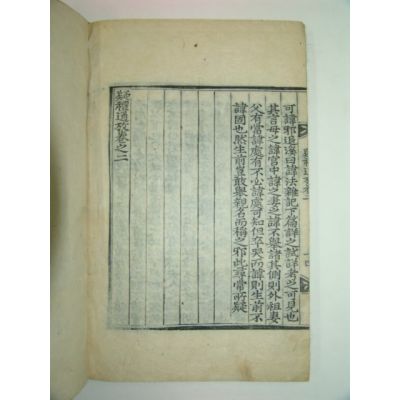 可諱邪退溪曰諱法雜記下篇詳之試詳考之可見也
其言母之諱宮中諱之妻之諱不擧諸其側則外祖妻
父有當諱處有不必諱處可知但卒哭而諱則生前不
諱固也然生前豈敢擧親名而稱之邪此尋常所疑
疑禮通攷卷之二